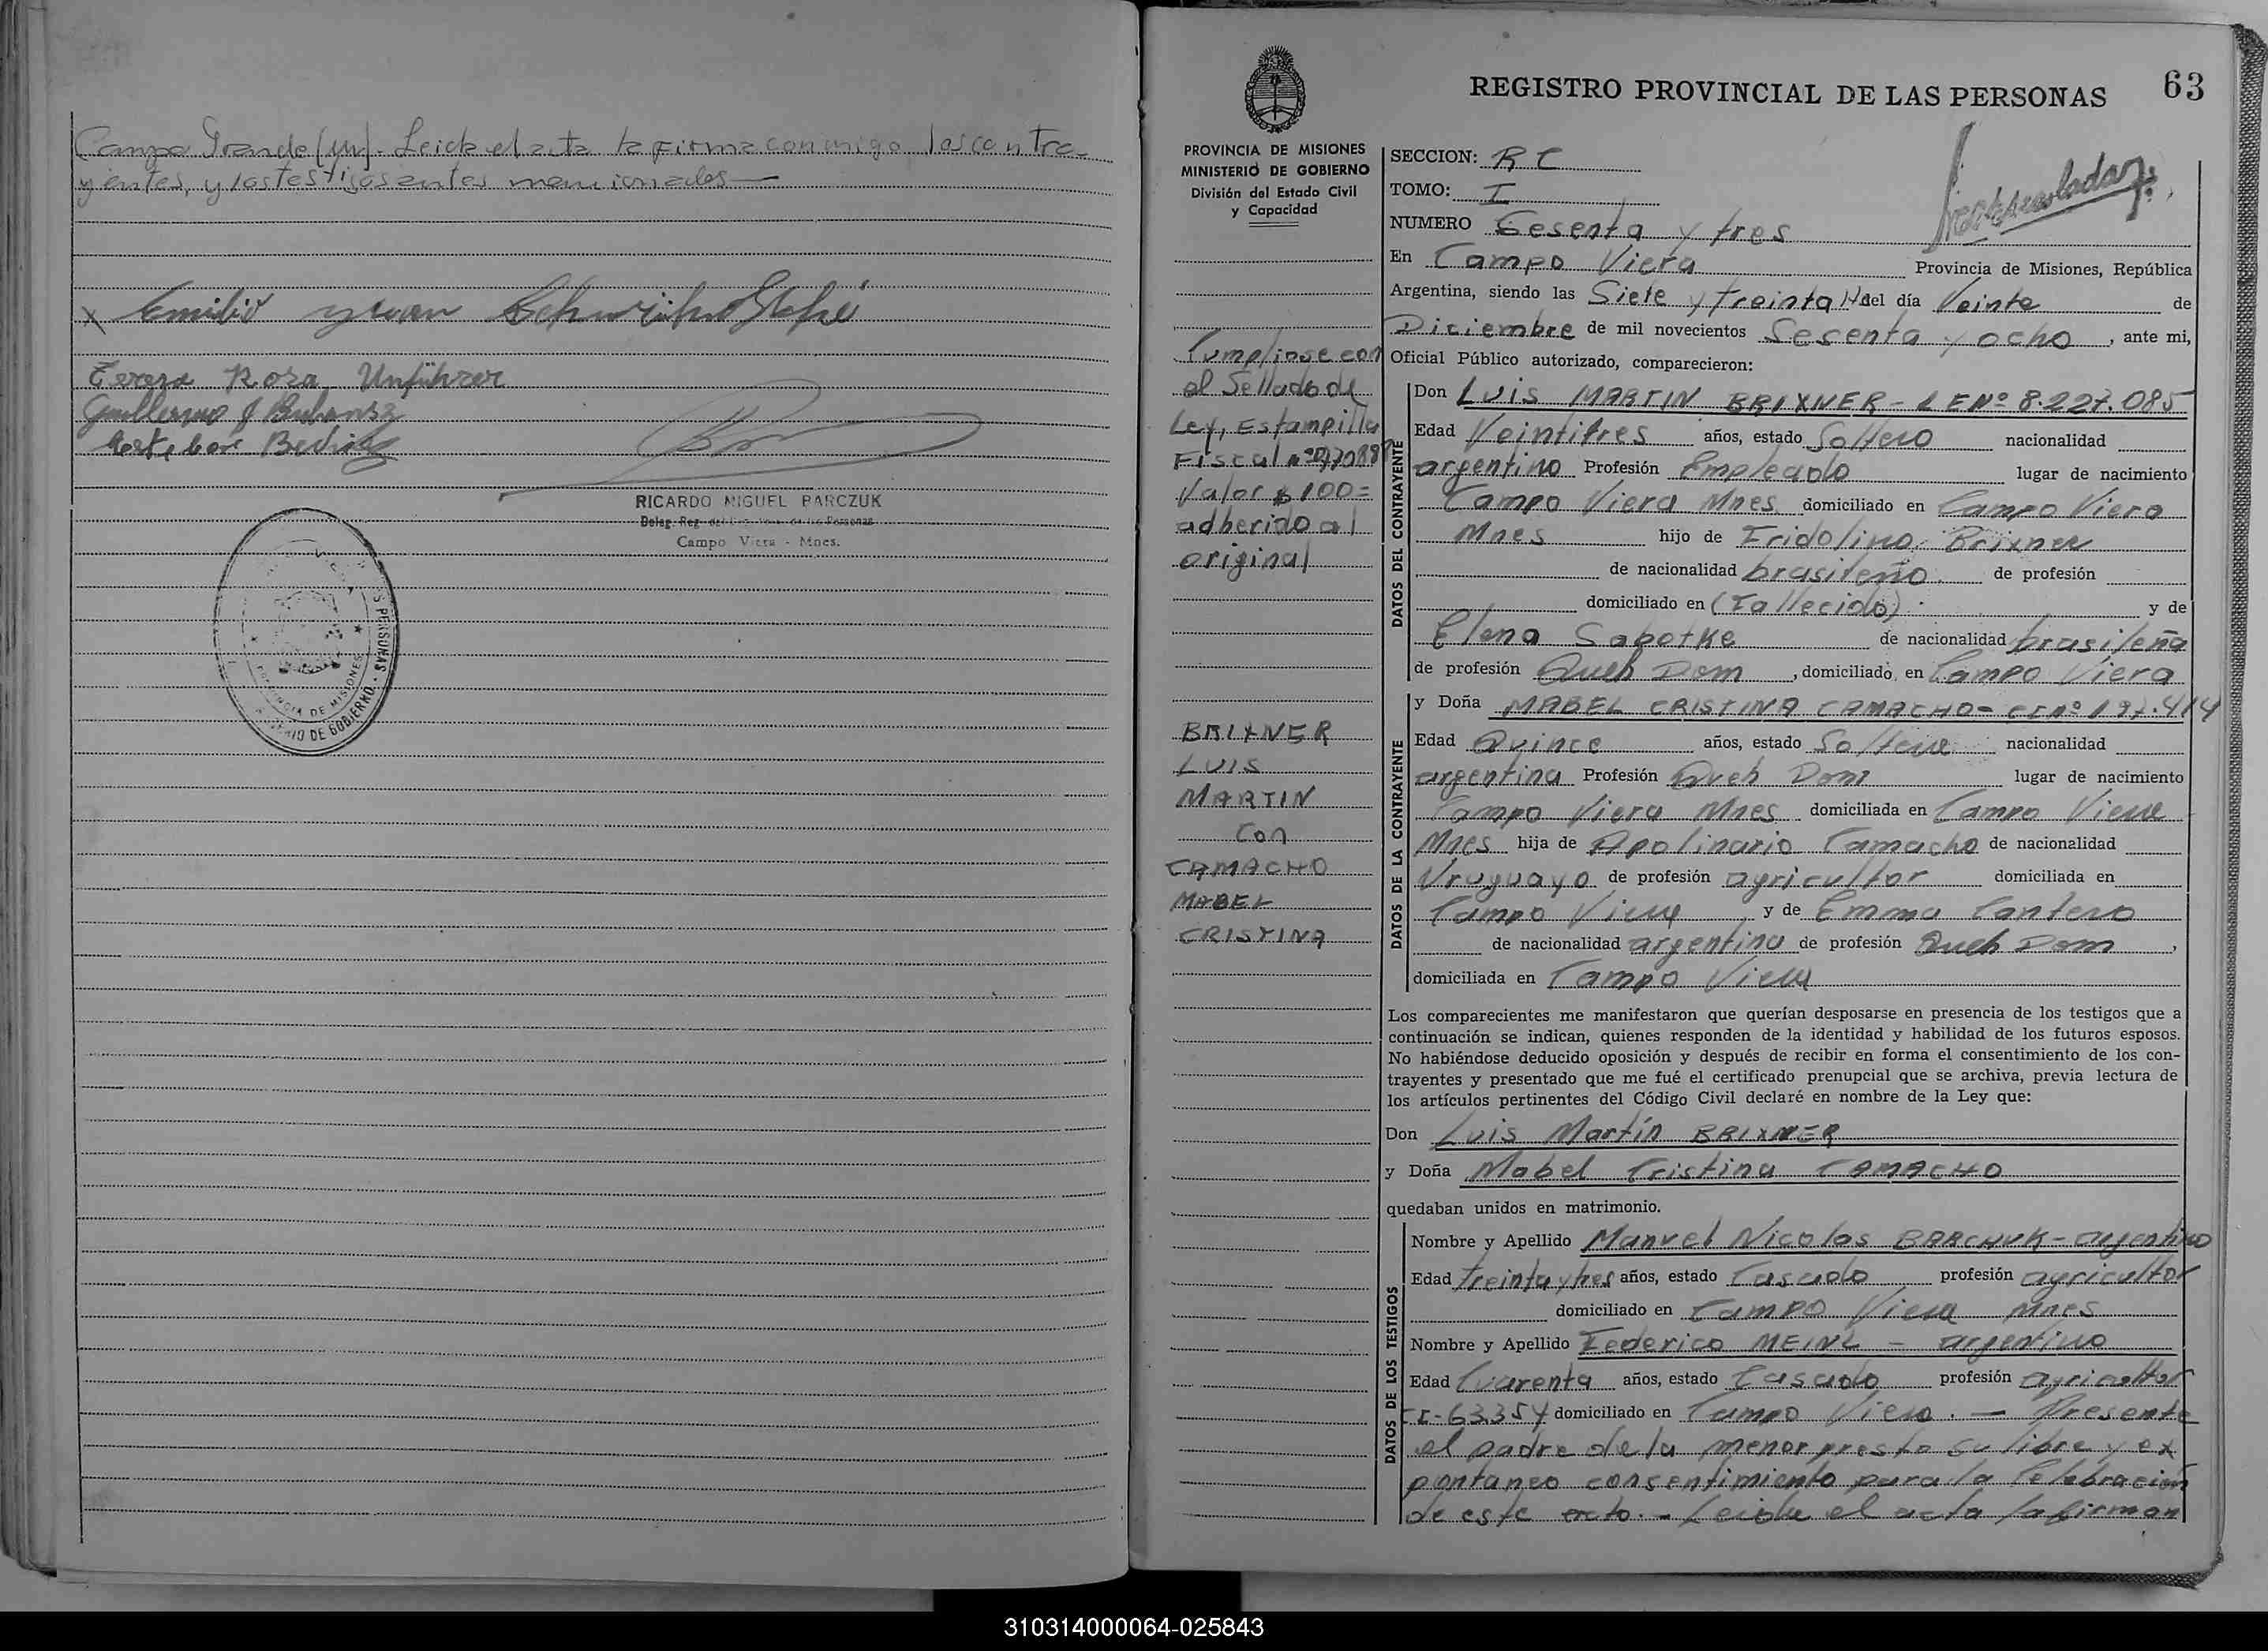 Campo Grande (Mn). Leida el acta la firma conmigo los contra-
yentes, y los testigos antes mencionados —
x Emilio
Teresa Rosa Unführer
Guillermo J
RICARDO MIGUEL PARCZUK
Deleg. Reg. de las Personas
Campo Viera - Mnes.
S PERSONAS
PROVINCIA DE MISIONES
MINISTERIO DE GOBIERNO
63
REGISTRO PROVINCIAL DE LAS PERSONAS
PROVINCIA DE MISIONES
MINISTERIO DE GOBIERNO
División del Estado Civil
y Capacidad
Cumpliose con
el Sellado de
Ley, Estampilla
Fiscal nº
Valor $ 100=
adherido al
original
BRIXNER
LUIS
MARTIN
Con
CAMACHO
MABEL
CRISTINA
SECCION: RC
TOMO: I
NUMERO Sesenta y tres
En Campo Viera Provincia de Misiones, República
Argentina, siendo las Siete y treinta H del día Veinte de
Diciembre de mil novecientos Sesenta y ocho, ante mi,
Oficial Público autorizado, comparecieron:
DATOS DEL CONTRAYENTE
Don Luis MARTIN BRIXNER - LE Nº 8.227.085
Edad Veintitres años, estado Soltero nacionalidad
argentino Profesión Empleado lugar de nacimiento
Campo Viera Mnes domiciliado en Campo Viera
Mnes hijo de Fridolino Brixner
de nacionalidad brasileño de profesión
domiciliado en (Fallecido) y de
Elena Sabotke de nacionalidad brasileña
de profesión Queh Dom, domiciliado en Campo Viera
DATOS DE LA CONTRAYENTE
y Doña MABEL CRISTINA CAMACHO - CI Nº 197.414
Edad Quince años, estado Soltera nacionalidad
argentina Profesión Queh Dom lugar de nacimiento
Campo Viera Mnes domiciliada en Campo Viera
Mnes hija de Apolinario Camacho de nacionalidad
Uruguayo de profesión agricultor domiciliada en
Campo Viera y de Emma Cantero
de nacionalidad argentina de profesión Queh Dom,
domiciliada en Campo Viera
Los comparecientes me manifestaron que querían desposarse en presencia de los testigos que a
continuación se indican, quienes responden de la identidad y habilidad de los futuros esposos.
No habiéndose deducido oposición y después de recibir en forma el consentimiento de los con-
trayentes y presentado que me fué el certificado prenupcial que se archiva, previa lectura de
los artículos pertinentes del Código Civil declaré en nombre de la Ley que:
Don Luis Martín BRIXNER
y Doña Mabel Cristina CAMACHO
quedaban unidos en matrimonio.
DATOS DE LOS TESTIGOS
Nombre y Apellido Manuel Nicolas BARCHUK - argentino
Edad treinta y tres años, estado Casado profesión agricultor
domiciliado en Campo Viera Mnes
Nombre y Apellido Federico MEINL - argentino
Edad Cuarenta años, estado Casado profesión agricultor
CI-63354 domiciliado en Campo Viera. — Presente
el padre de la menor presto su libre y ex
pontaneo consentimiento para la Celebracion
de este acto. - Leida el acta la firman
310314000064-025843